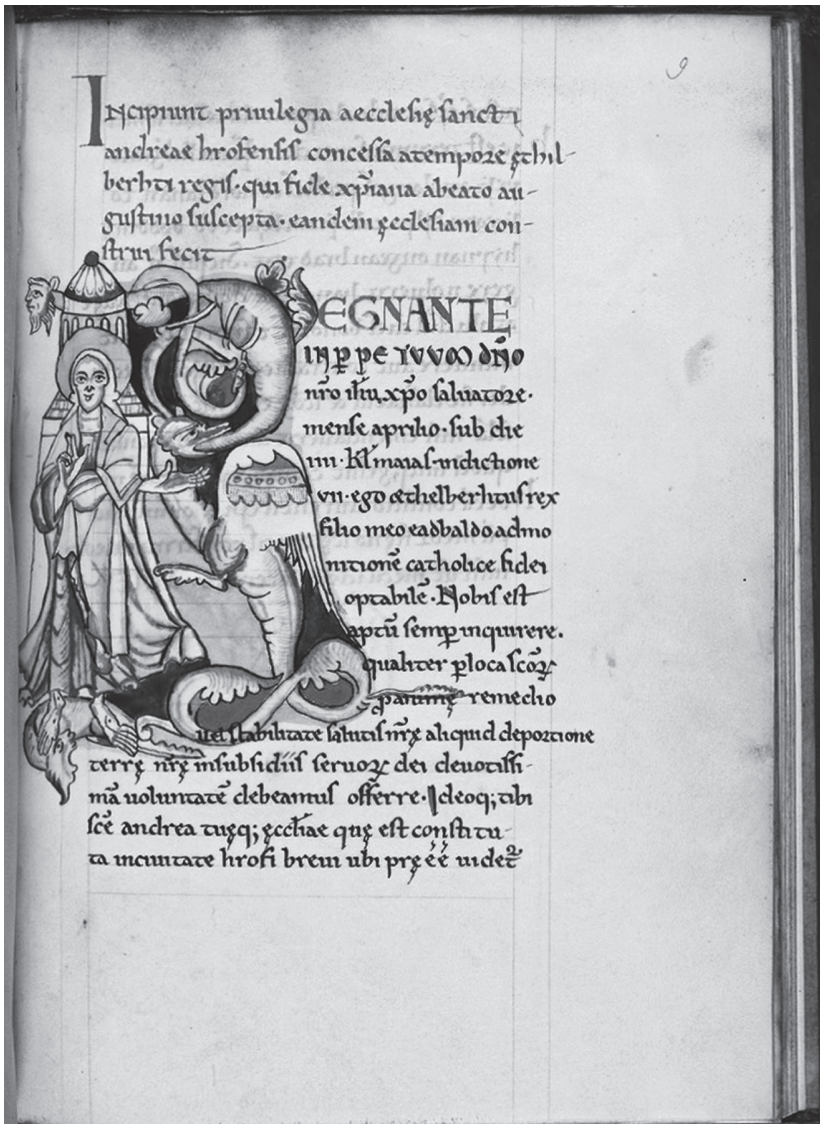 9
Incipiunt priuilegia aecclesię sancti
andreae hrofensis concessa a tempore ęthil-
berhti regis· qui fide xp̄iana a beato au-
gustino suscepta· eandem ęcclesiam con-
strui fecit
REGNANTE
IN P̲P̲ETVVM dn̄o
nr̄o ih̄u xp̄o saluatore·
mense aprilio· sub die
iiii· kl̄ maias· indictione
vii· ego æthelberhtus rex
filio meo eadbaldo admo
nitionē catholice fidei
optabilē· Nobis est
aptū semp̲ inquirere.
qualiter p̲ loca scōꝝ
p̲ animę remedio
uel stabilitate salutis nr̄ę aliquid de portione
terrę nr̄ę in subsidiis seruoꝝ dei deuotissi-
mā uoluntatē debeamus offerre· Ideoq; tibi
sc̄e andrea tuęq; ęccl̄iae quę est constitu-
ta in ciuitate hrofi breui ubi pręē ē uidet᷑